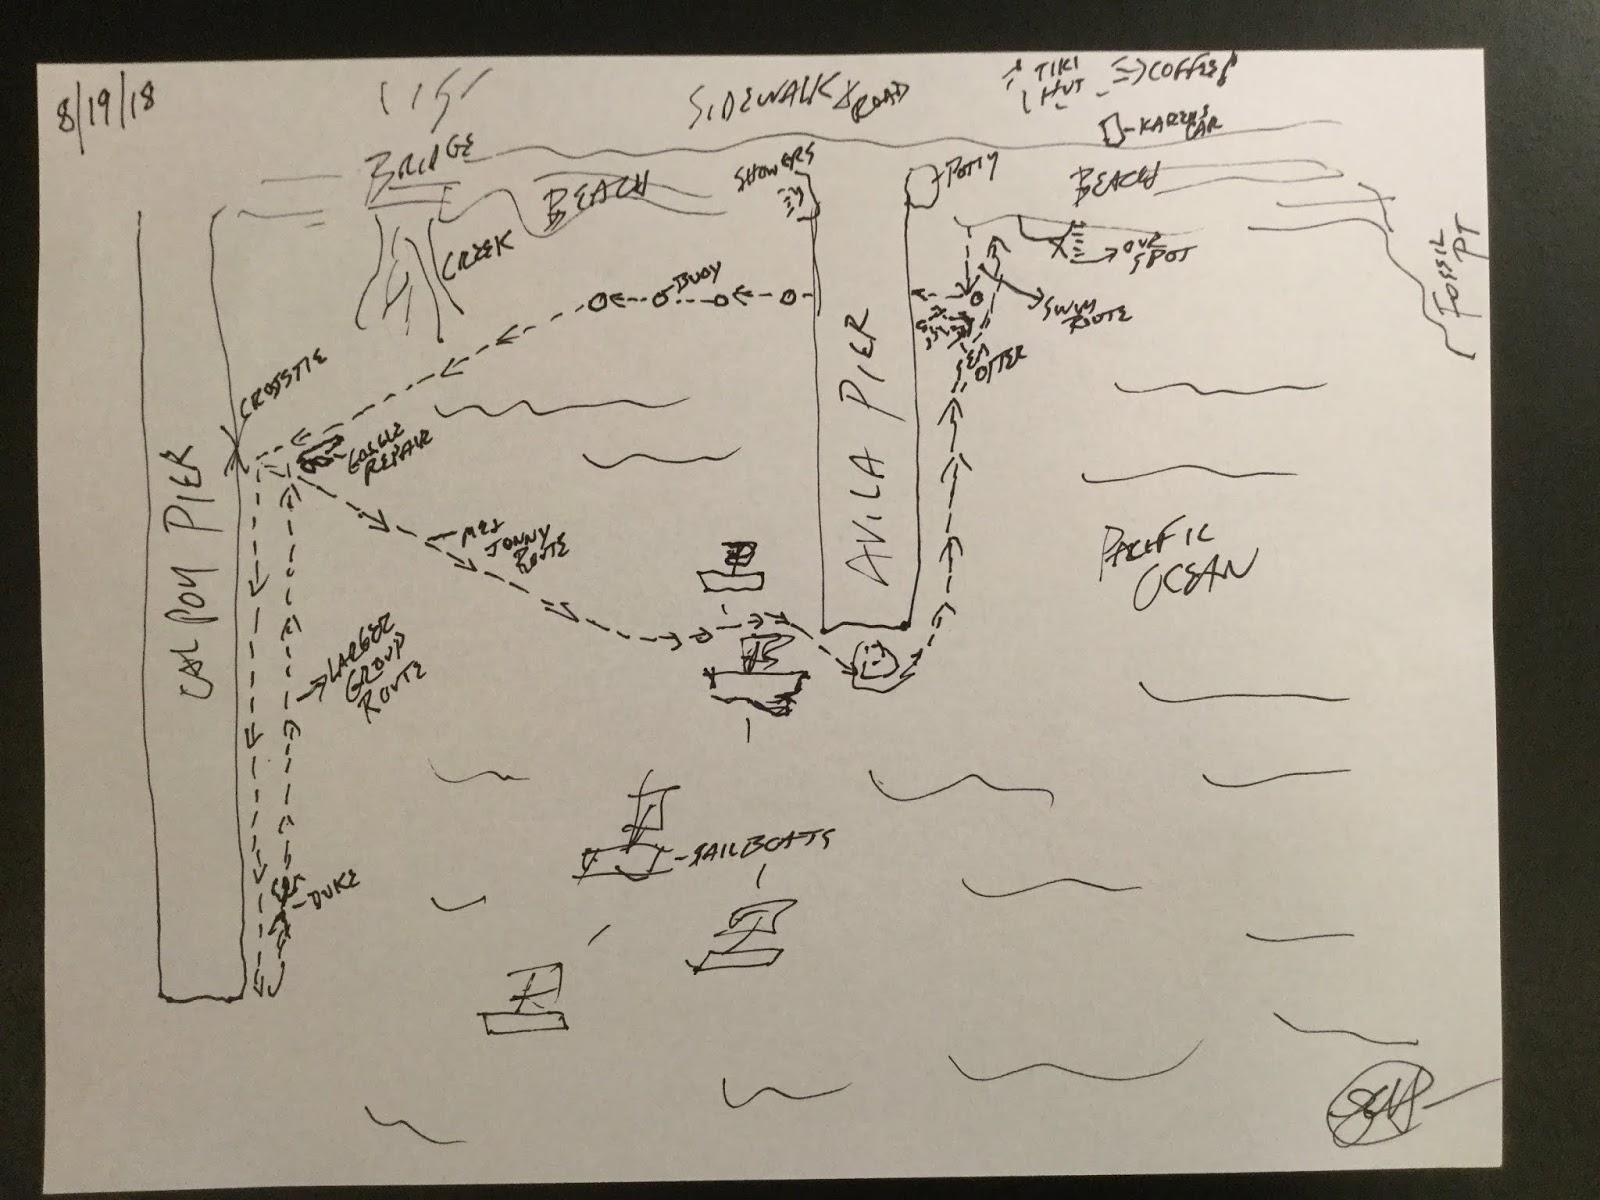 8/19/18
SIDEWALK &
ROAD
TIKI
HUT
COFFEE
KAREN'S
CAR
BRIDGE
BEACH
SHOWERS
POTTY
BEACH
CREEK
BUOY
OUR
SPOT
FOSSIL
PT
SWIM
ROUTE
SEA
OTTER
CROSSTIE
GOGGLE
REPAIR
CAL POLY PIER
AVILA PIER
ME &
JONNY
ROUTE
PACIFIC
OCEAN
LARGER
GROUP
ROUTE
SAILBOATS
DUKE